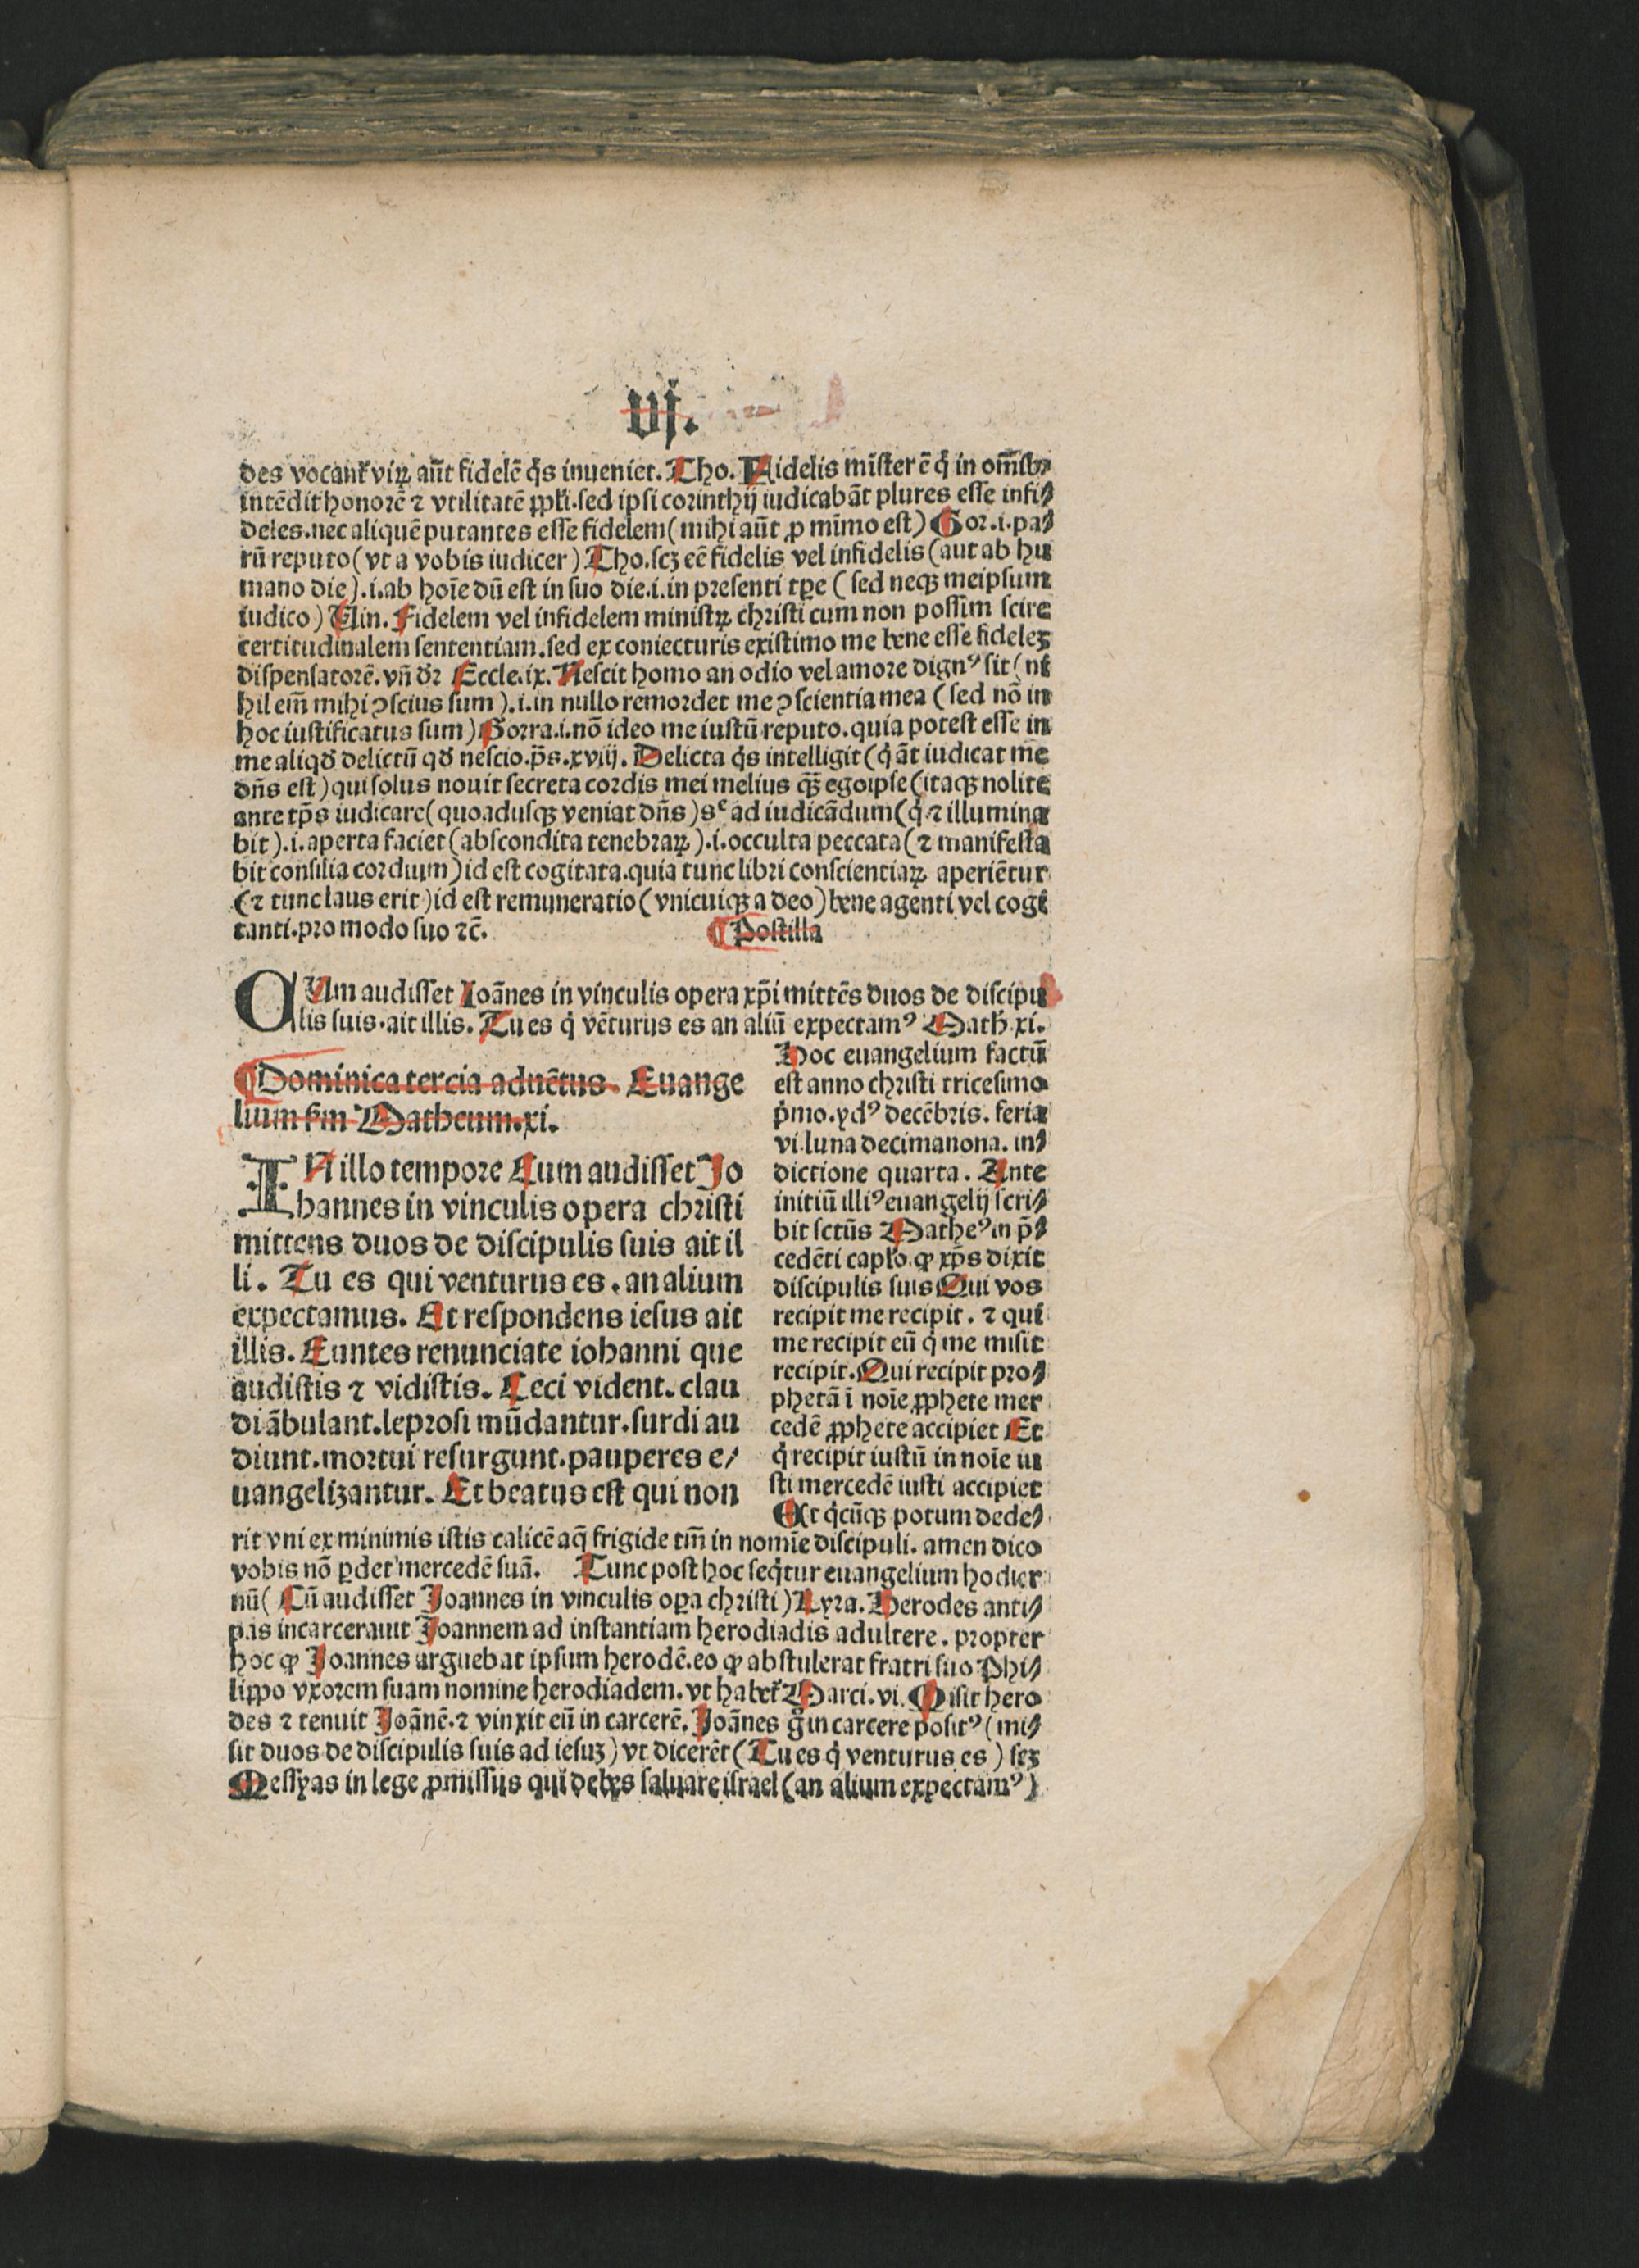 vj.
des vocant᷑ viꝝ aūt fidelē q̇s inueniet. Tho. Fidelis mīster ē q̇ in om̄ibꝫ
intēdit honorē ⁊ vtilitatē ꝓpl̓i. sed ipsi corinthij iudicabāt plures esse infi⸗
deles. nec aliquē putantes esse fidelem (mihi aūt ꝓ mīmo est) Gor. i. pa⸗
rū reputo (vt a vobis iudicer) Tho. scꝫ eē fidelis vel infidelis (aut ab hu
mano die). i. ab hoīe dū est in suo die. i. in presenti tꝑe (sed neqꝫ meipsum
iudico) Uin. Fidelem vel infidelem ministꝝ christi cum non possim scire
certitudinalem sententiam. sed ex coniecturis existimo me bene esse fidelez
dispensatorē. vn̄ dr̄ Eccle. ix. Nescit homo an odio vel amore dignꝰ sit (ni
hil em̄ mihi ꝯscius sum). i. in nullo remordet me ꝯscientia mea (sed nō in
hoc iustificatus sum) Gorra. i. nō ideo me iustū reputo. quia potest esse in
me aliqd̓ delictū qd̓ nescio. ps̄. xviij. Delicta q̇s intelligit (q̇ āt iudicat me
dn̄s est) qui solus nouit secreta cordis mei melius q̄ꝫ egoipse (itaqꝫ nolite
ante tp̄s iudicare (quoadusqꝫ veniat dn̄s) sᶜ ad iudicādum (q̇ ⁊ illumina
bit). i. aperta faciet (abscondita tenebraꝝ). i. occulta peccata (⁊ manifesta
bit consilia cordium) id est cogitata. quia tunc libri conscientiaꝝ aperiētur
(⁊ tunc laus erit) id est remuneratio (vnicuiqꝫ a deo) bene agenti vel cogi
tanti. pro modo suo ⁊c̄. ¶ Postilla
CUm audisset Ioānes in vinculis opera xp̄i mittēs duos de discipu
lis suis. ait illis. Tu es q̇ vēturus es an aliū expectamꝰ Math. xi.
¶ Dominica tercia aduētus. Euange
lium s̓m Matheum. xi.
IN illo tempore Cum audisset Jo
hannes in vinculis opera christi
mittens duos de discipulis suis ait il
li. Tu es qui venturus es. an alium
expectamus. Et respondens iesus ait
illis. Euntes renunciate iohanni que
audistis ⁊ vidistis. Ceci vident. clau
di ābulant. leprosi mūdantur. surdi au
diunt. mortui resurgunt. pauperes e⸗
uangelizantur. Et beatus est qui non
Hoc euangelium factū
est anno christi tricesimo
p̓mo. ydꝰ decēbris. feria
vi. luna decimanona. in⸗
dictione quarta. Ante
initiū illiꝰ euangelij scri⸗
bit sctūs Matheꝰ in p̄⸗
cedēti caplo. ꝙ xp̄s dixit
discipulis suis Qui vos
recipit me recipit. ⁊ qui
me recipit eū q̇ me misit
recipit. Qui recipit pro⸗
phetā ī noīe ꝓphete mer
cedē ꝓphete accipiet Et
q̇ recipit iustū in noīe iu
sti mercedē iusti accipiet
Et q̇cūqꝫ potum dede⸗
rit vni ex minimis istis calicē aq̄ frigide tm̄ in nomīe discipuli. amen dico
vobis nō ꝑdet mercedē suā. Tunc post hoc seq̇tur euangelium hodier
nū (Cū audisset Joannes in vinculis oꝑa christi) Lyra. Herodes anti⸗
pas incarcerauit Joannem ad instantiam herodiadis adultere. propter
hoc ꝙ Joannes arguebat ipsum herodē. eo ꝙ abstulerat fratri suo Phi⸗
lippo vxorem suam nomine herodiadem. vt habet᷑ Marci. vi. Misit hero
des ⁊ tenuit Joānē. ⁊ vinxit eū in carcerē. Joānes g̊ in carcere positꝰ (mi⸗
sit duos de discipulis suis ad iesuꝫ) vt dicerēt (Tu es q̇ venturus es) scꝫ
Messyas in lege ꝓmissus qui debes saluare israel (an alium expectamꝰ)